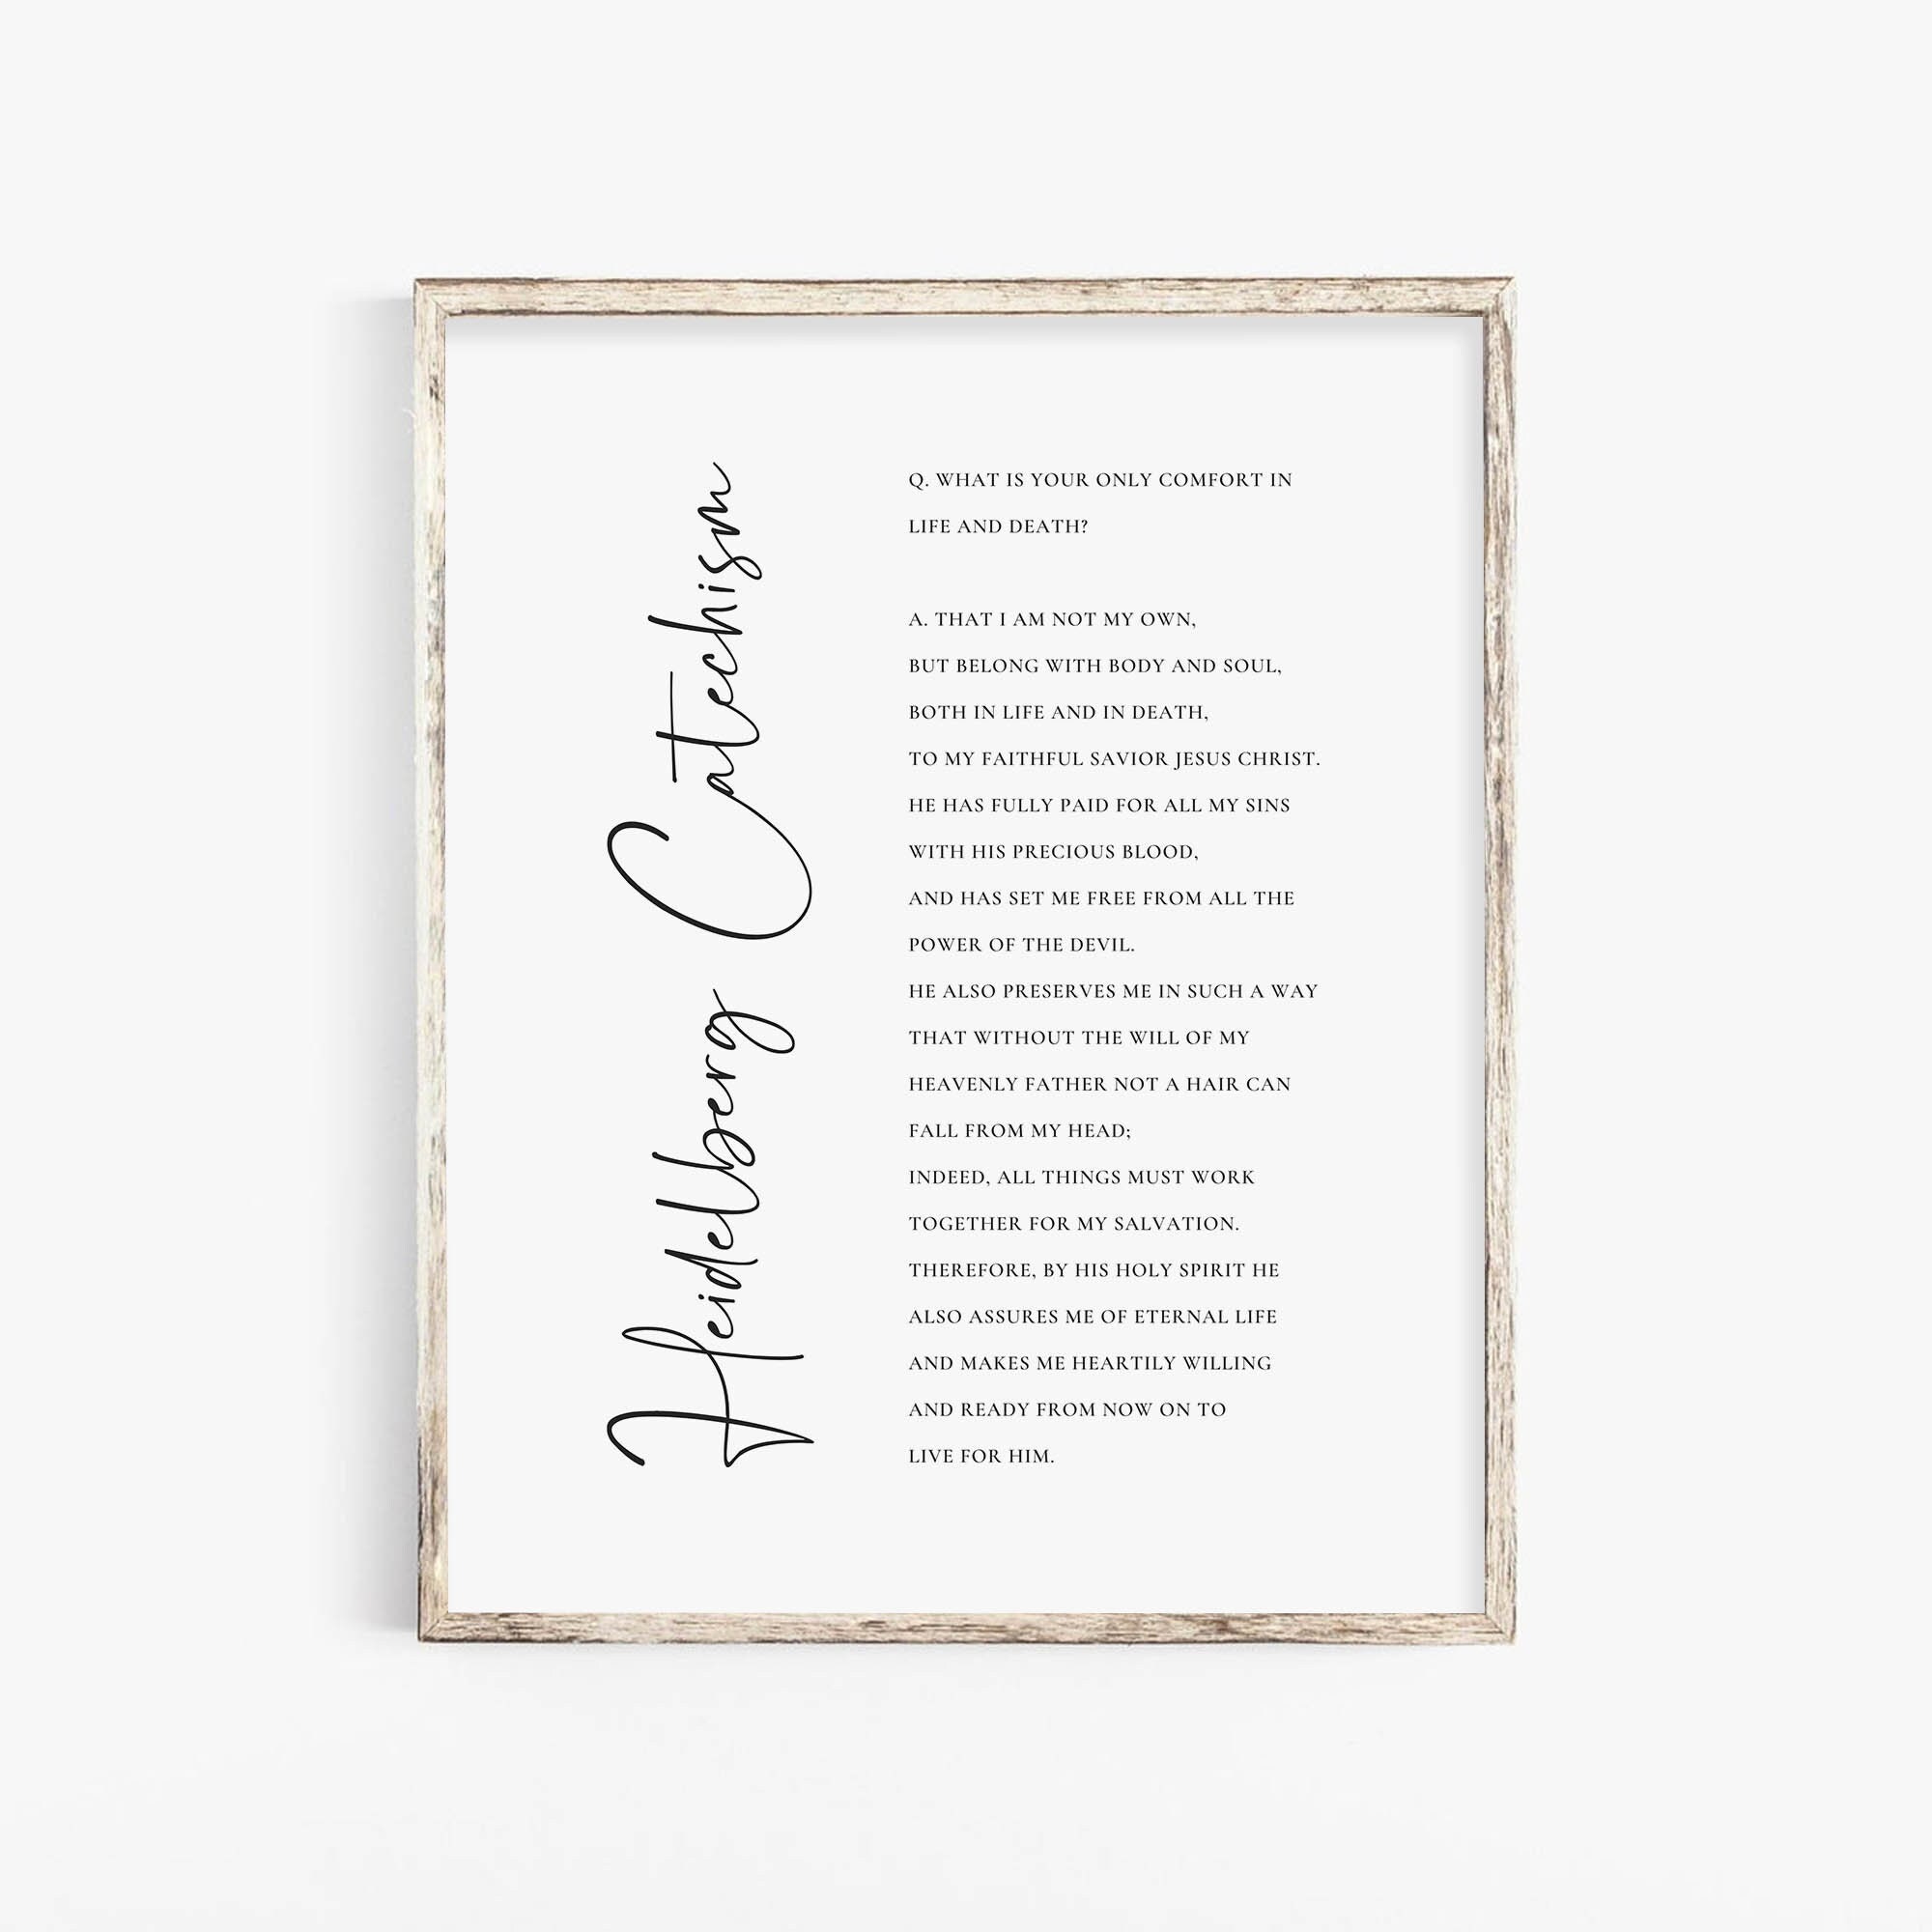 Heidelberg Catechism
Q. WHAT IS YOUR ONLY COMFORT IN
LIFE AND DEATH?
A. THAT I AM NOT MY OWN,
BUT BELONG WITH BODY AND SOUL,
BOTH IN LIFE AND IN DEATH,
TO MY FAITHFUL SAVIOR JESUS CHRIST.
HE HAS FULLY PAID FOR ALL MY SINS
WITH HIS PRECIOUS BLOOD,
AND HAS SET ME FREE FROM ALL THE
POWER OF THE DEVIL.
HE ALSO PRESERVES ME IN SUCH A WAY
THAT WITHOUT THE WILL OF MY
HEAVENLY FATHER NOT A HAIR CAN
FALL FROM MY HEAD;
INDEED, ALL THINGS MUST WORK
TOGETHER FOR MY SALVATION.
THEREFORE, BY HIS HOLY SPIRIT HE
ALSO ASSURES ME OF ETERNAL LIFE
AND MAKES ME HEARTILY WILLING
AND READY FROM NOW ON TO
LIVE FOR HIM.